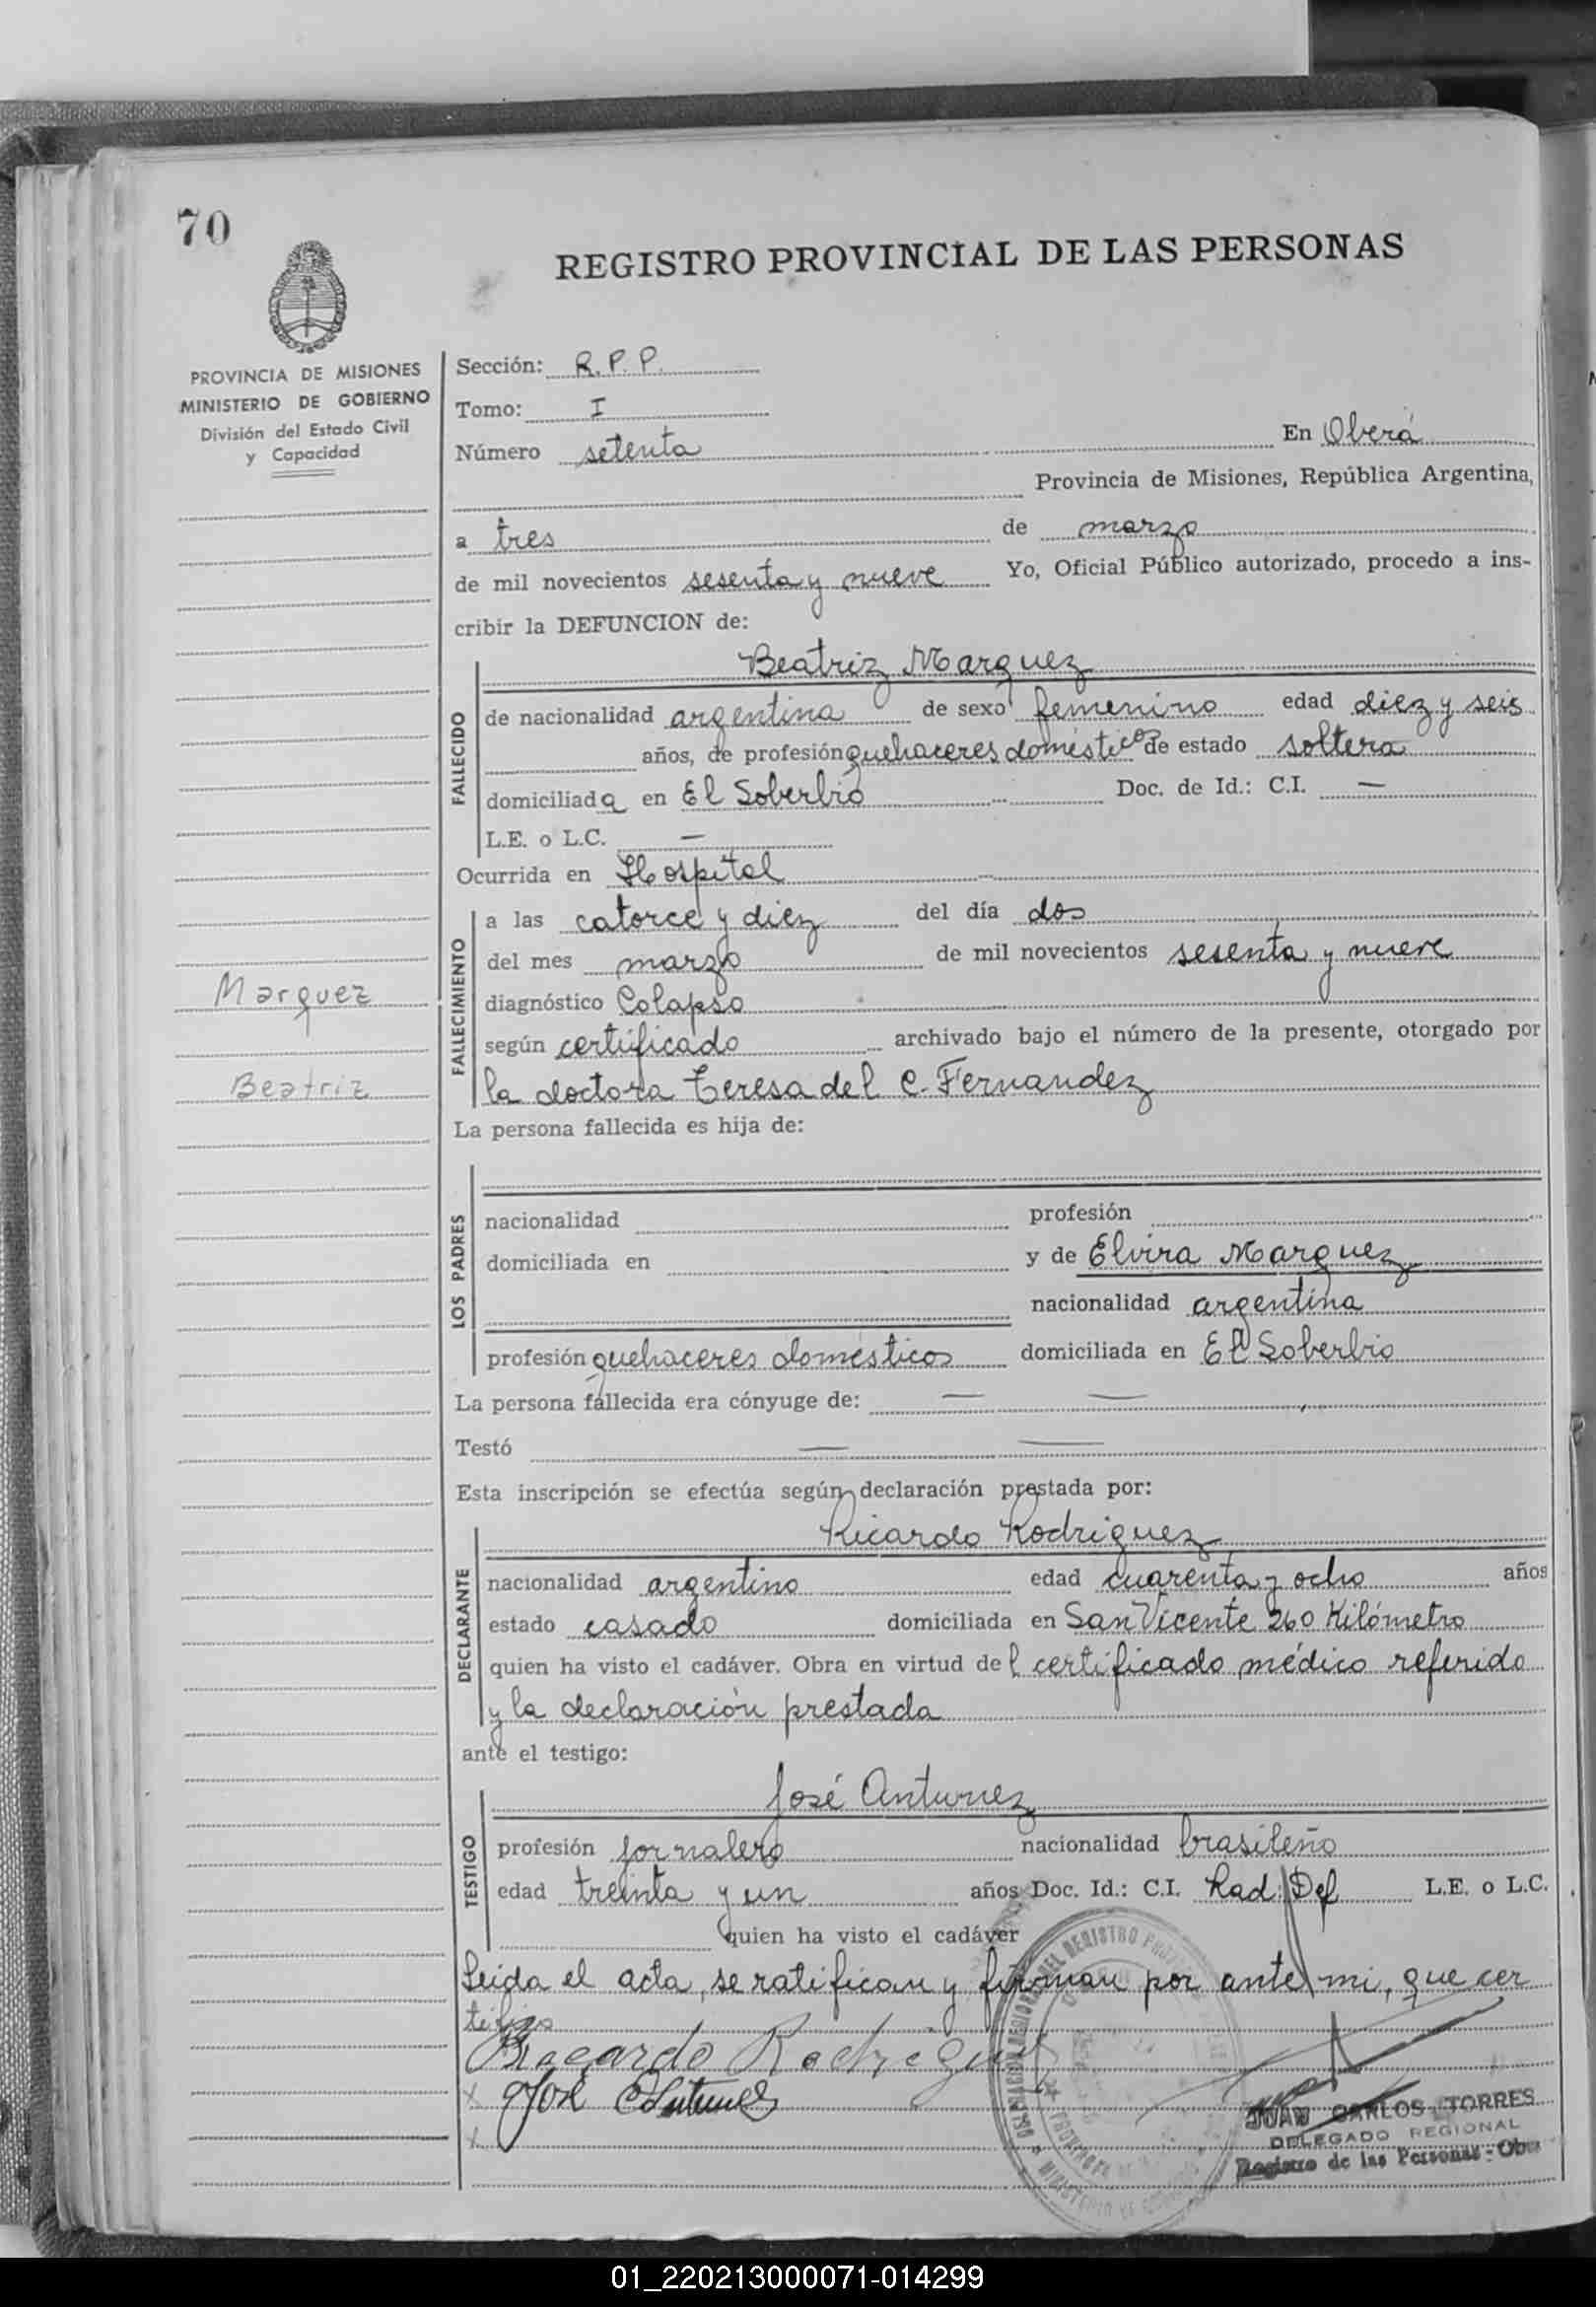 70
REGISTRO PROVINCIAL DE LAS PERSONAS
PROVINCIA DE MISIONES
MINISTERIO DE GOBIERNO
División del Estado Civil
y Capacidad
Marquez
Beatriz
Sección: R.P.P.
Tomo: I
Número setenta En Oberá
Provincia de Misiones, República Argentina,
a tres de marzo
de mil novecientos sesenta y nueve Yo, Oficial Público autorizado, procedo a ins-
cribir la DEFUNCION de:
FALLECIDO
Beatriz Marquez
de nacionalidad argentina de sexo femenino edad diez y seis
años, de profesión quehaceres domésticos de estado soltera
domiciliada en El Soberbio Doc. de Id.: C.I. —
L.E. o L.C. —
Ocurrida en Hospital
FALLECIMIENTO
a las catorce y diez del día dos
del mes marzo de mil novecientos sesenta y nueve
diagnóstico Colapso
según certificado archivado bajo el número de la presente, otorgado por
la doctora Teresa del C. Fernandez
La persona fallecida es hija de:
LOS PADRES
nacionalidad profesión
domiciliada en y de Elvira Marquez
nacionalidad argentina
profesión quehaceres domésticos domiciliada en El Soberbio
La persona fallecida era cónyuge de: — —
Testó — —
Esta inscripción se efectúa según declaración prestada por:
DECLARANTE
Ricardo Rodriguez
nacionalidad argentino edad cuarenta y ocho años
estado casado domiciliada en San Vicente 260 Kilómetro
quien ha visto el cadáver. Obra en virtud del certificado médico referido
y la declaración prestada
ante el testigo:
TESTIGO
José Antunez
profesión jornalero nacionalidad brasileño
edad treinta y un años Doc. Id.: C.I. Rad. Def L.E. o L.C.
quien ha visto el cadáver
Leida el acta, se ratifican y firman por ante mi, que cer
tifico
Ricardo Rodriguez
x José Antunez
x
JUAN CARLOS TORRES
DELEGADO REGIONAL
Registro de las Personas - Obe
01_220213000071-014299